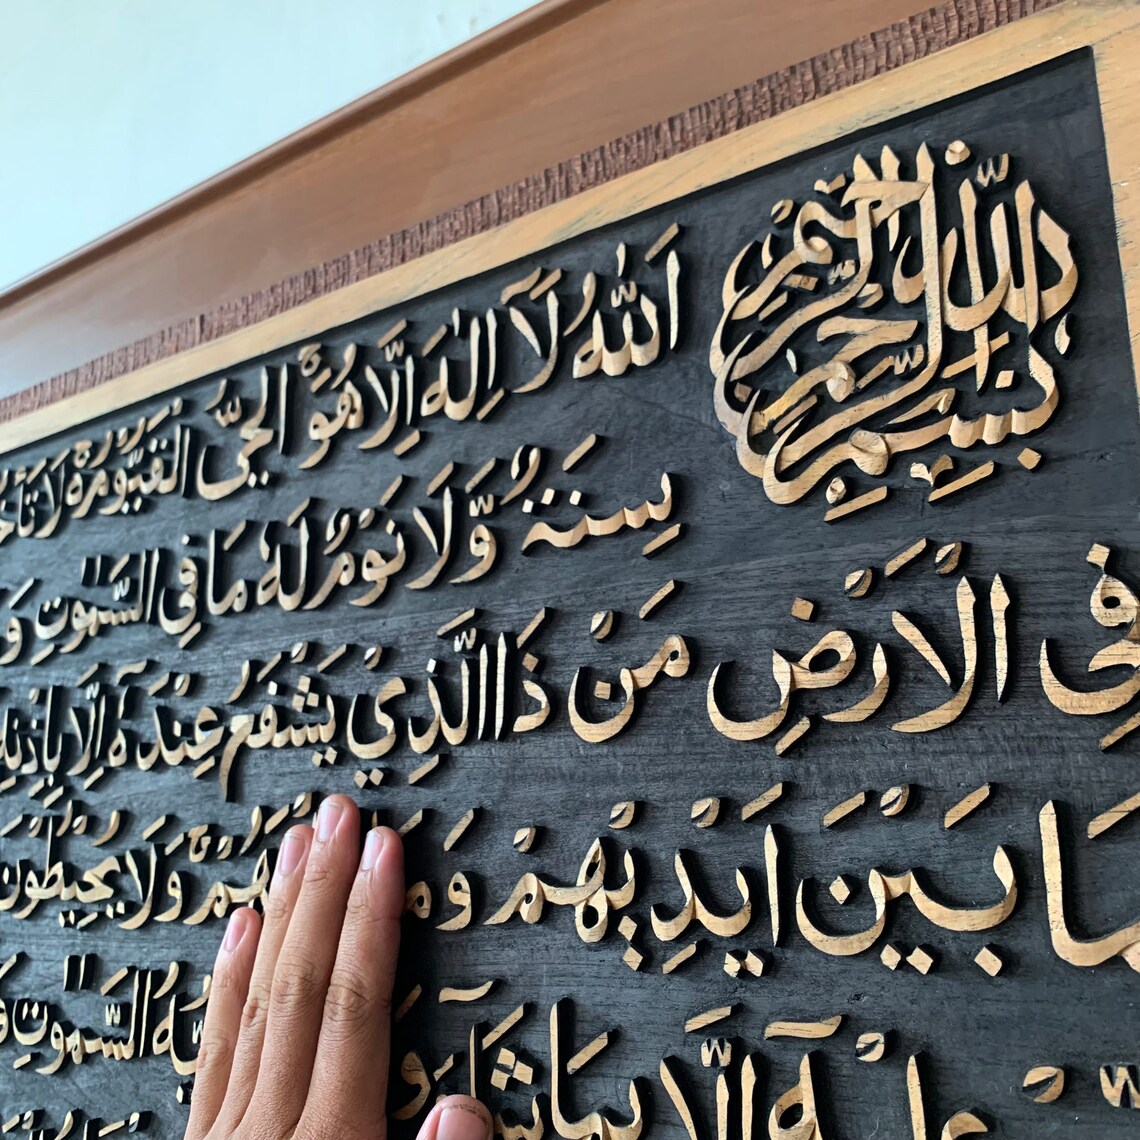 بِسْمِ اللهِ الرَّحْمٰنِ الرَّحِيْمِ
اَللهُ لَآ اِلٰهَ اِلَّا هُوَ الْحَيُّ الْقَيُّوْمُ ەۚ لَا
سِنَةٌ وَّلَا نَوْمٌ لَهٗ مَا فِى السَّمٰوٰتِ وَ
فِى الْاَرْضِ مَنْ ذَا الَّذِيْ يَشْفَعُ عِنْدَهٗٓ اِلَّا بِاِذْنِهٖ
مَا بَيْنَ اَيْدِيْهِمْ وَمَا هُمْ وَلَا يُحِيْطُوْنَ
اِلَّا بِمَا شَآءَ وَ السَّمٰوٰتِ